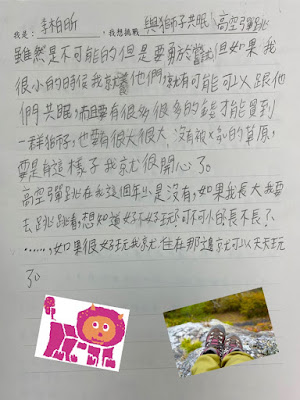 我是:李柏昕,我想挑戰 與獅子共眠、高空彈跳
雖然是不可能的但是要勇於嘗試但如果我
很小的時侯我就養他們,就有可能可以跟他
們共眠,而且要有很多很多的錢才能買到
一群獅子,也要有很大很大、沒有被的草原,
要是有這樣子我就很開心了。
高空彈跳在我這個年是沒有,如果我長大我要
去跳跳看,想知道好不好玩?可不可怕?長不長?
……,如果很好玩我就住在那邊就可以天天玩
了。